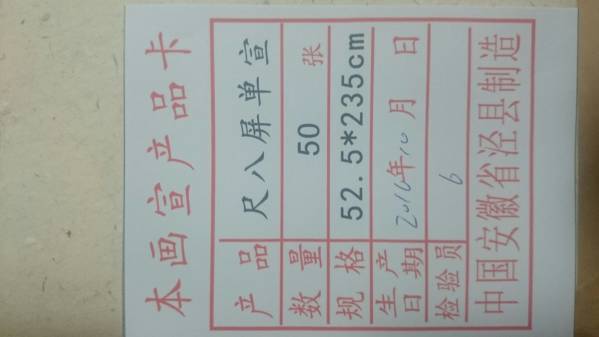 本画宣产品卡
产品 尺八屏单宣
数量 50 张
规格 52.5*235cm
生产日期 2016年10月 日
检验员 6
中国安徽省泾县制造